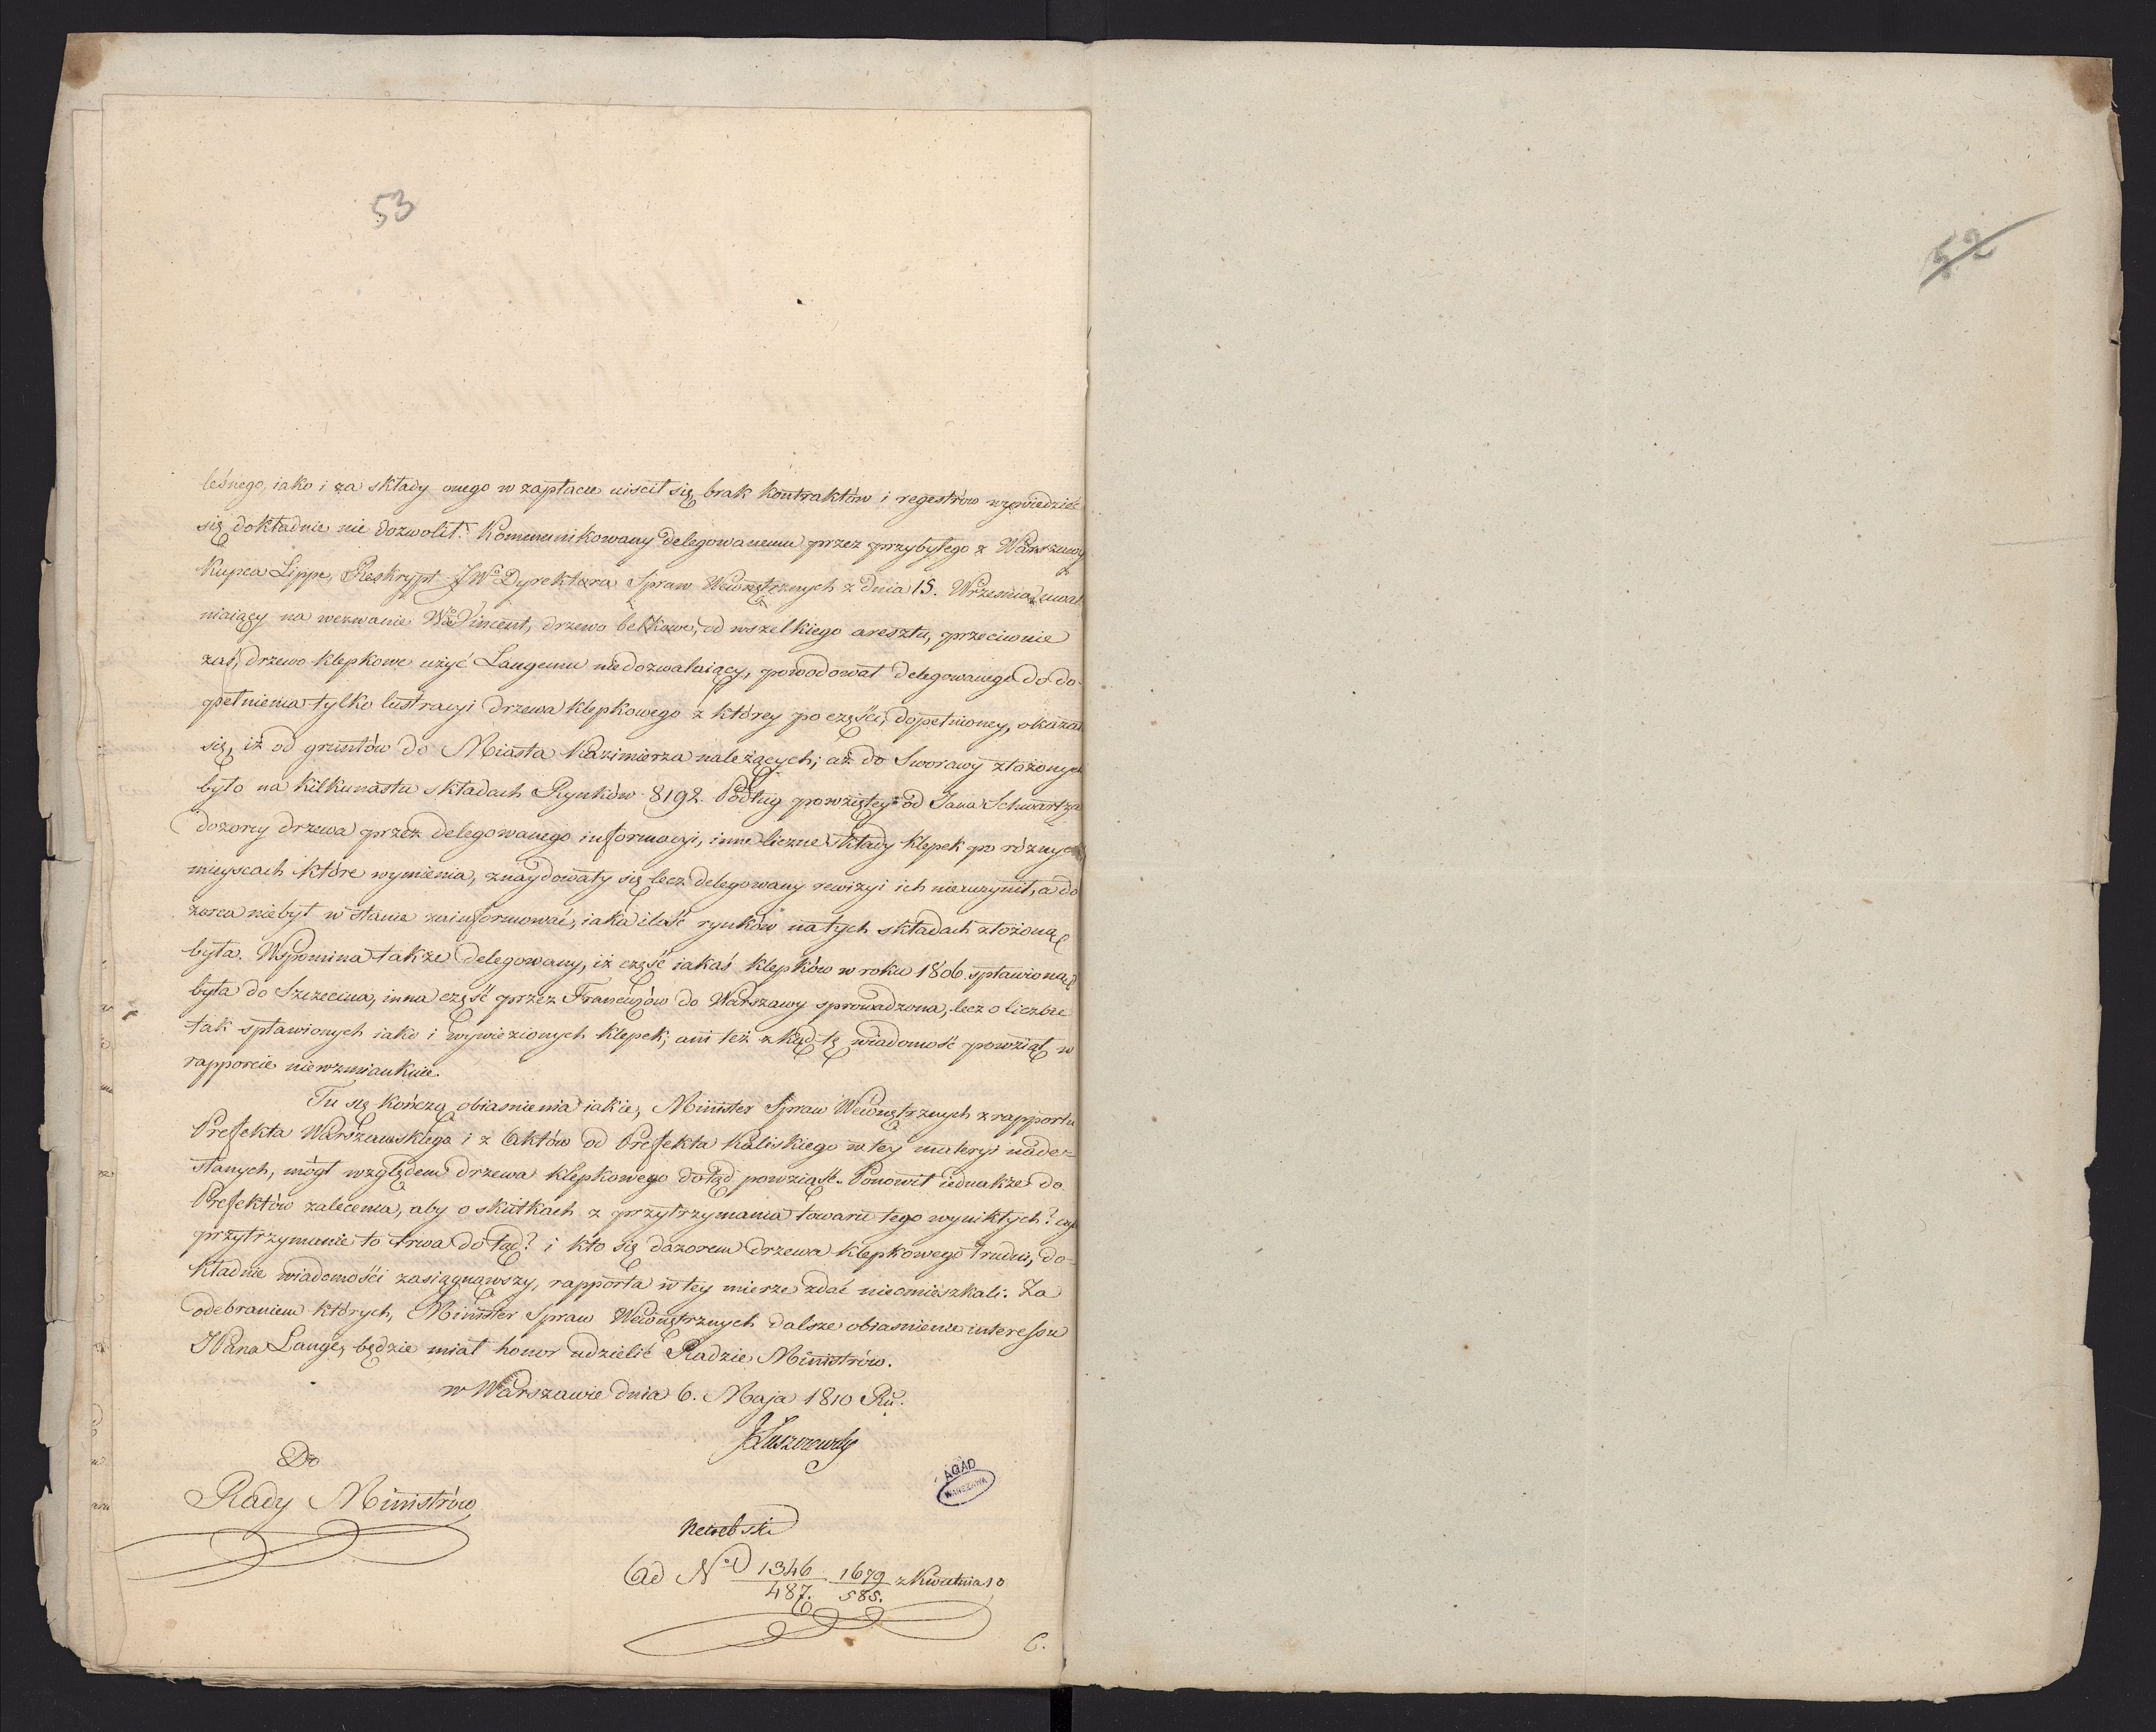 53
52
leśnego, iako i za składy onego w zapłacie uiscił się, brak kontraktów i regestrów wywiedzieć
się dokładnie nie dozwolił. Kommunikowany delegowanemu przez przybyłego z Warszawy
Kupca Lippe, Reskrypt JWo Dyrektora Spraw Wewnętrznych z dnia 15. Września uwal
niaiący na wezwanie Wo Vincent, drzewo belkowe, od wszelkiego aresztu, przeciwnie
zaś, drzewo klepkowe użyć Langemu niedozwalaiący, powodował delegowanego do do-
pełnienia tylko lustracyi drzewa klepkowego z którey po części dopełnioney, okazał
się, iż od gruntów do Miasta Kazimierza należących; aż do Sworawy złożonych
było na kilkunastu składach Rynków 8192. Podług powziętey od Jana Schwartza
dozorcy drzewa przez delegowanego informacyi, inne liczne składy klepek po różnych
mieyscach które wymienia, znaydowały się lecz delegowany rewizyi ich nieuczynił, a do
zorca niebył w stanie zainformować, iaka ilość rynków na tych składach złożona
była. Wspomina także delegowany, iż część iakaś klepków w roku 1806. spławiona
była do Szczecina, inna część przez Francuzów do Warszawy sprowadzona, lecz o liczbie
tak spławionych iako i wywiezionych klepek, ani też zkąd tę wiadomość powziął w
rapporcie niewzmiankuie.
Tu się kończą obiasnienia iakie, Minister Spraw Wewnętrznych z rapportu
Prefekta Warszawskiego i z Aktów od Prefekta Kaliskiego w tey materyi nade-
słanych, mógł względem drzewa klepkowego dotąd powziąść. Ponowił iednakże do
Prefektów zalecenia, aby o skutkach z przytrzymania towaru tego wynikłych? czy
przytrzymanie to trwa dotąd? i kto się dozorem drzewa klepkowego trudni, do-
kładnie wiadomości zasiągnąwszy, rapporta w tey mierze zdać nieomieszkali. Za
odebraniem których, Minister Spraw Wewnętrznych dalsze obiasnienie interessu
JPana Lange, będzie miał honor udzielić Radzie Ministrów.
w Warszawie dnia 6. Maja 1810 Ru.
JŁuszczewski
Do
Rady Ministrów
AGAD
WARSZAWA
Ad No 1346/487. 1679/585. z Kwietnia 10
C.